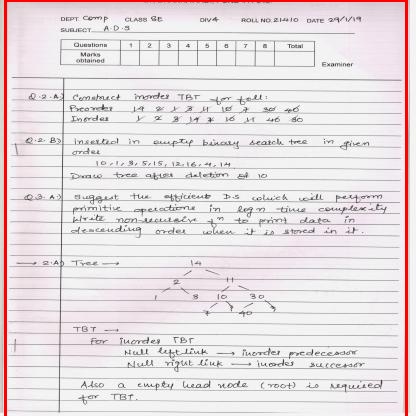 DEPT. Comp CLASS SE DIV 4 ROLL NO. 21410 DATE 29/1/19
SUBJECT A.D.S
Questions 1 2 3 4 5 6 7 8 Total
Marks obtained
Examiner
Q.2.A) Construct inorder TBT for foll:
Preorder 14 2 1 3 11 10 7 30 40
Inorder 1 2 3 14 7 10 11 40 30
Q.2.B) Inserted in empty binary search tree in given
order
10, 1, 3, 5, 15, 12, 16, 4, 14
Draw tree after deletion of 10
Q.3.A) Suggest the efficient D.S which will perform
primitive operations in logn time complexity
Write non-recursive fn to print data in
descending order when it is stored in it.
→ 2.A) Tree →
14
2 11
1 3 10 30
7 40
TBT →
For inorder TBT
Null left link → inorder predecessor
Null right link → inorder successor
Also a empty head node (root) is required
for TBT.